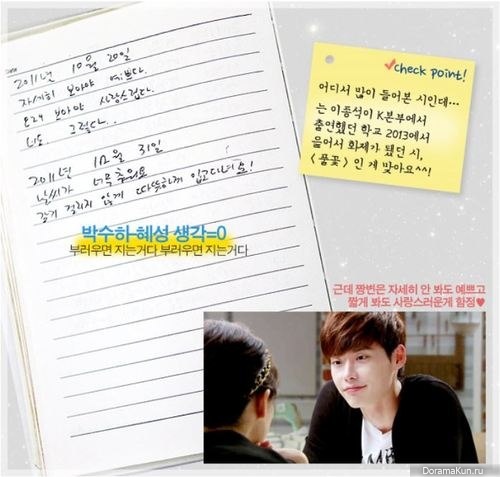 2011년 10월 20일
자세히 보아야 예쁘다.
오래 보아야 사랑스럽다.
너도 그렇다..
2011년 12월 31일
날씨가 너무 추워요
감기 걸리지 않게 따뜻하게 입고다녀요!
박수하 혜성 생각=0
부러우면 지는거다 부러우면 지는거다
check point!
어디서 많이 들어본 시인데...
는 이종석이 K본부에서
출연했던 학교 2013에서
읊어서 화제가 됐던 시,
<풀꽃> 인 게 맞아요^^!
근데 짱변은 자세히 안 봐도 예쁘고
짧게 봐도 사랑스러운게 함정♥
DoramaKun.ru